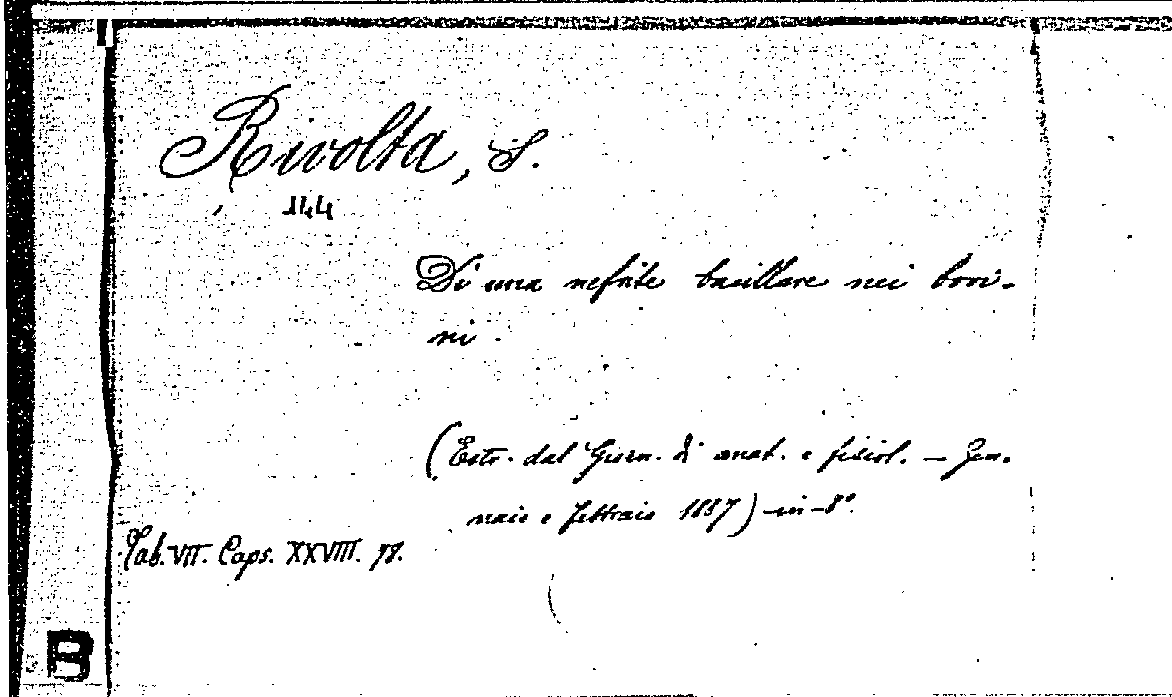 Rivolta, S.
144
Di una nefrite bacillare nei bovi-
ni.
(Estr. dal Giorn. di anat. e fisiol. – Gen.
naio e Febbraio 1887) – in – 8°.
Tab. VII. Caps. XXVIII.
B